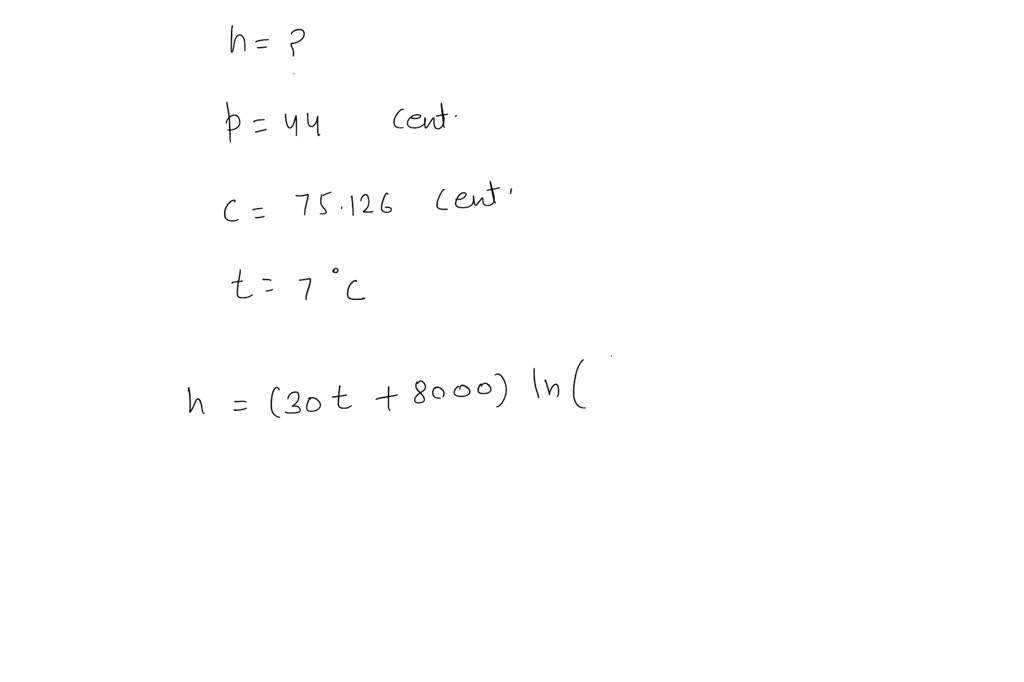 h = ?
p = 44 cent.
c = 75.126 cent.
t = 7 °C
h = (30t + 8000) ln(